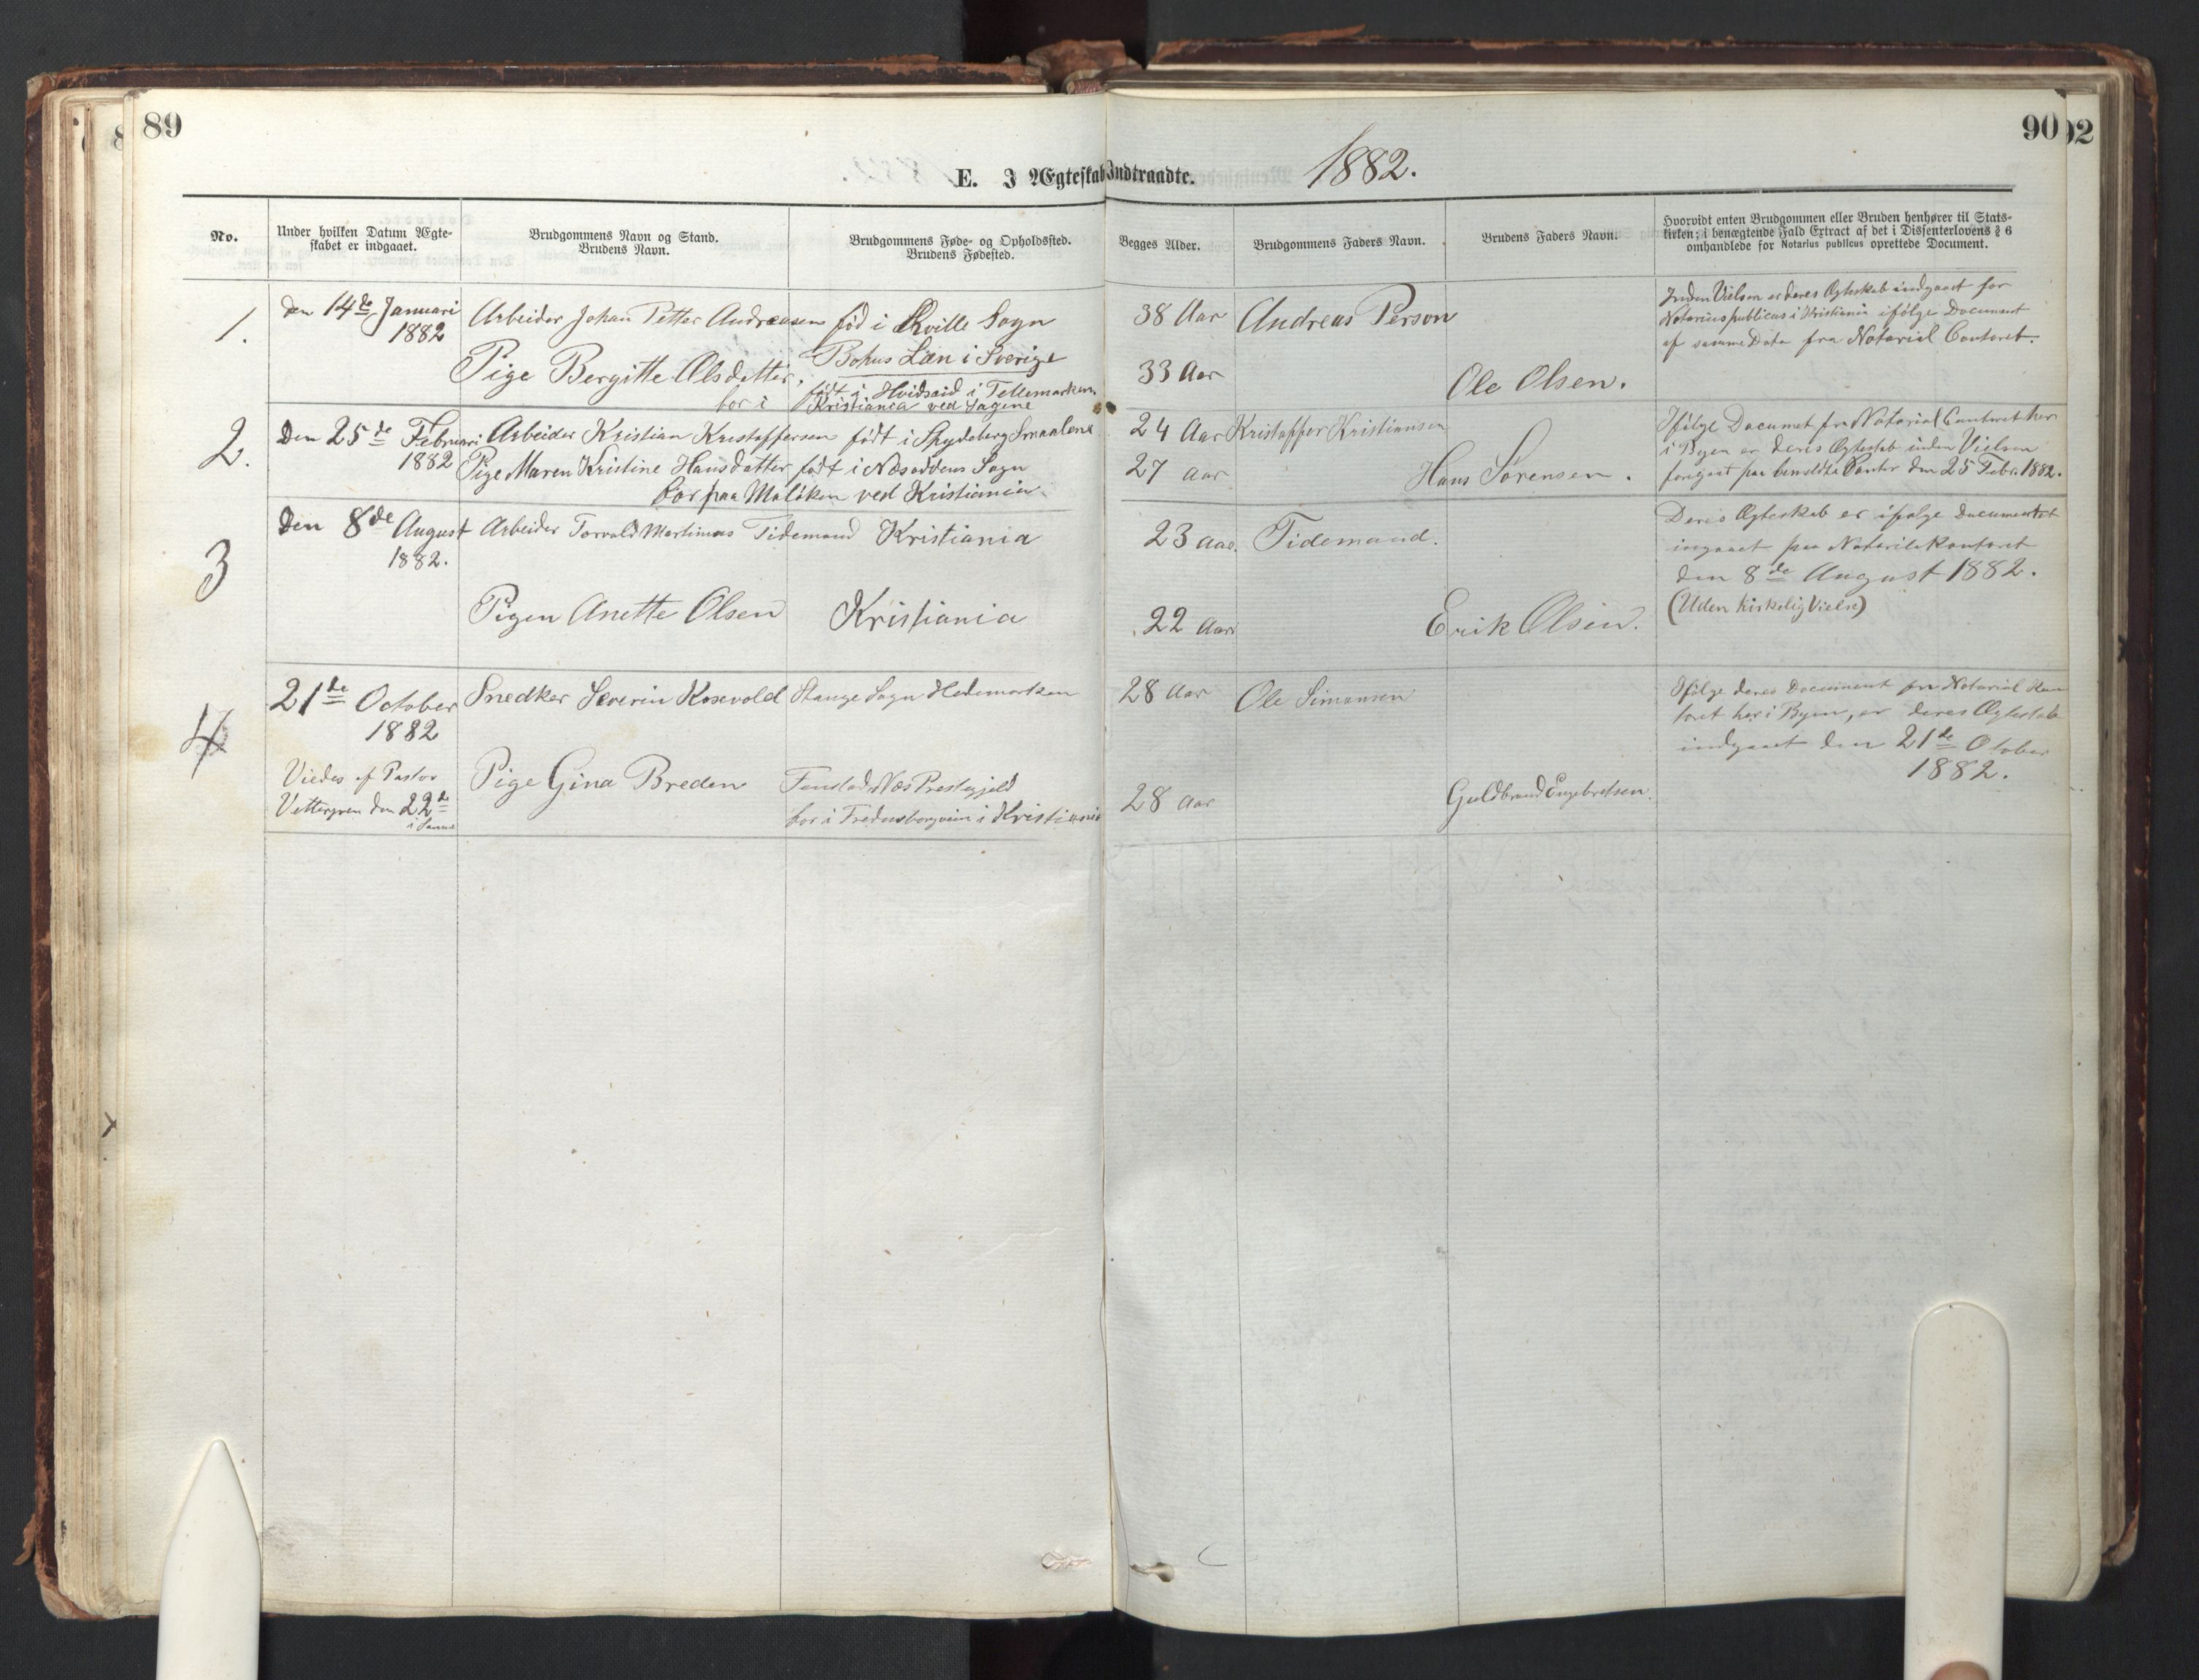 89
90
92
E. I Ægteskab Indtraadte. 1882.
No.
Under hvilken Datum Ægte-
skabet er indgaaet.
Brudgommens Navn og Stand.
Brudens Navn.
Brudgommens Føde- og Opholdssted.
Brudens Fødested.
Begges Alder.
Brudgommens Faders Navn.
Brudens Faders Navn.
Hvorvidt enten Brudgommen eller Bruden henhører til Stats-
kirken; i benægtende Fald Extract af det i Dissenterlovens § 6
omhandlede for Notarius publicus oprettede Document.
1.
den 14de Januari
1882
Arbeider Johan Petter Andreasen
Pige Bergitte Olsdatter,
bor i
fød i Kville Sogn
Bohus Län i Sverige
født i Hvidseid i Tellemarken
Kristiania ved Sagene
38 Aar
33 Aar
Andreas Person
Ole Olsen.
Inden Vielsen er deres Ægteskab indgaaet for
Notarius publicus i Kristiania ifølge Document
af samme Dato fra Notarial Contoret.
2.
Den 25de Februari
1882
Arbeider Kristian Kristoffersen
Pige Maren Kristine Hansdatter
født i Spydeberg Smaalene
født i Næsoddens Sogn
bor paa Maløken ved Kristiania
24 Aar
27 aar
Kristoffer Kristiansen
Hans Sørensen.
Ifølge Documet fra Notarial Contoret her
i Byen er deres Ægteskab inden Vielsen
foregaat paa bemeldte Contor den 25 Febr. 1882.
3
Den 8de August
1882.
Arbeider Torvald Martinius Tidemand
Pigen Anette Olsen
Kristiania
Kristiania
23 aar.
22 Aar
Tidemand.
Erik Olsen.
Deres Ægteskab er ifølge Documentet
ingaaet paa Notarialkontoret
den 8de August 1882.
(Uden kirkelig Vielse)
4
21de October
1882
Viedes af Pastor
Vettergren den 22de
i samme
Snedker Severin Rosevold
Pige Gina Breden
Stange Sogn Hedemarken
Fenstad Næs Prestegjeld
bor i Fredensborgveien i Kristiania
28 Aar
28 aar
Ole Simensen
Guldbrand Engebretsen.
Ifølge deres Document fra Notarial Kon
toret her i Byen, er deres Ægteskab
indgaaet den 21de October
1882.